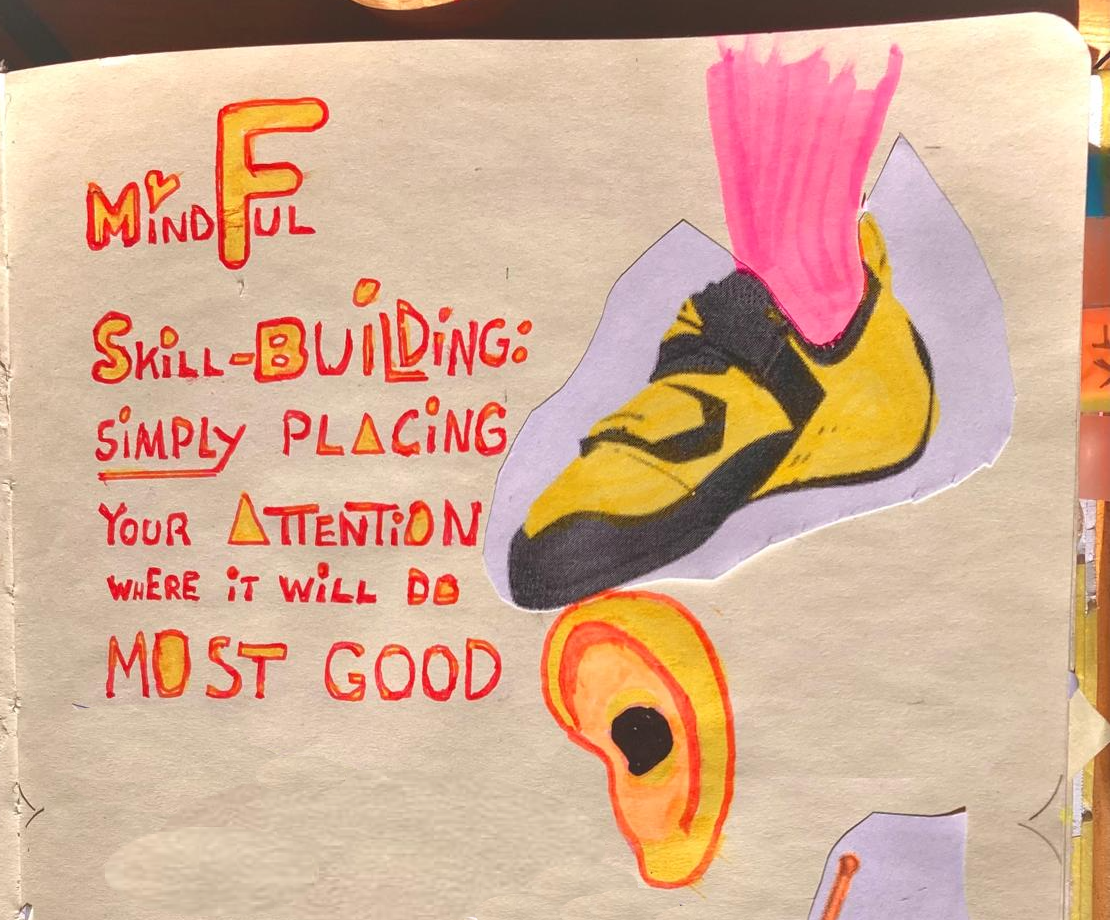 MiNDFUL
SKiLL-BUiLDiNG:
SiMPLY PLACiNG
YOUR ATTENTiON
WHERE iT WiLL DO
MOST GOOD